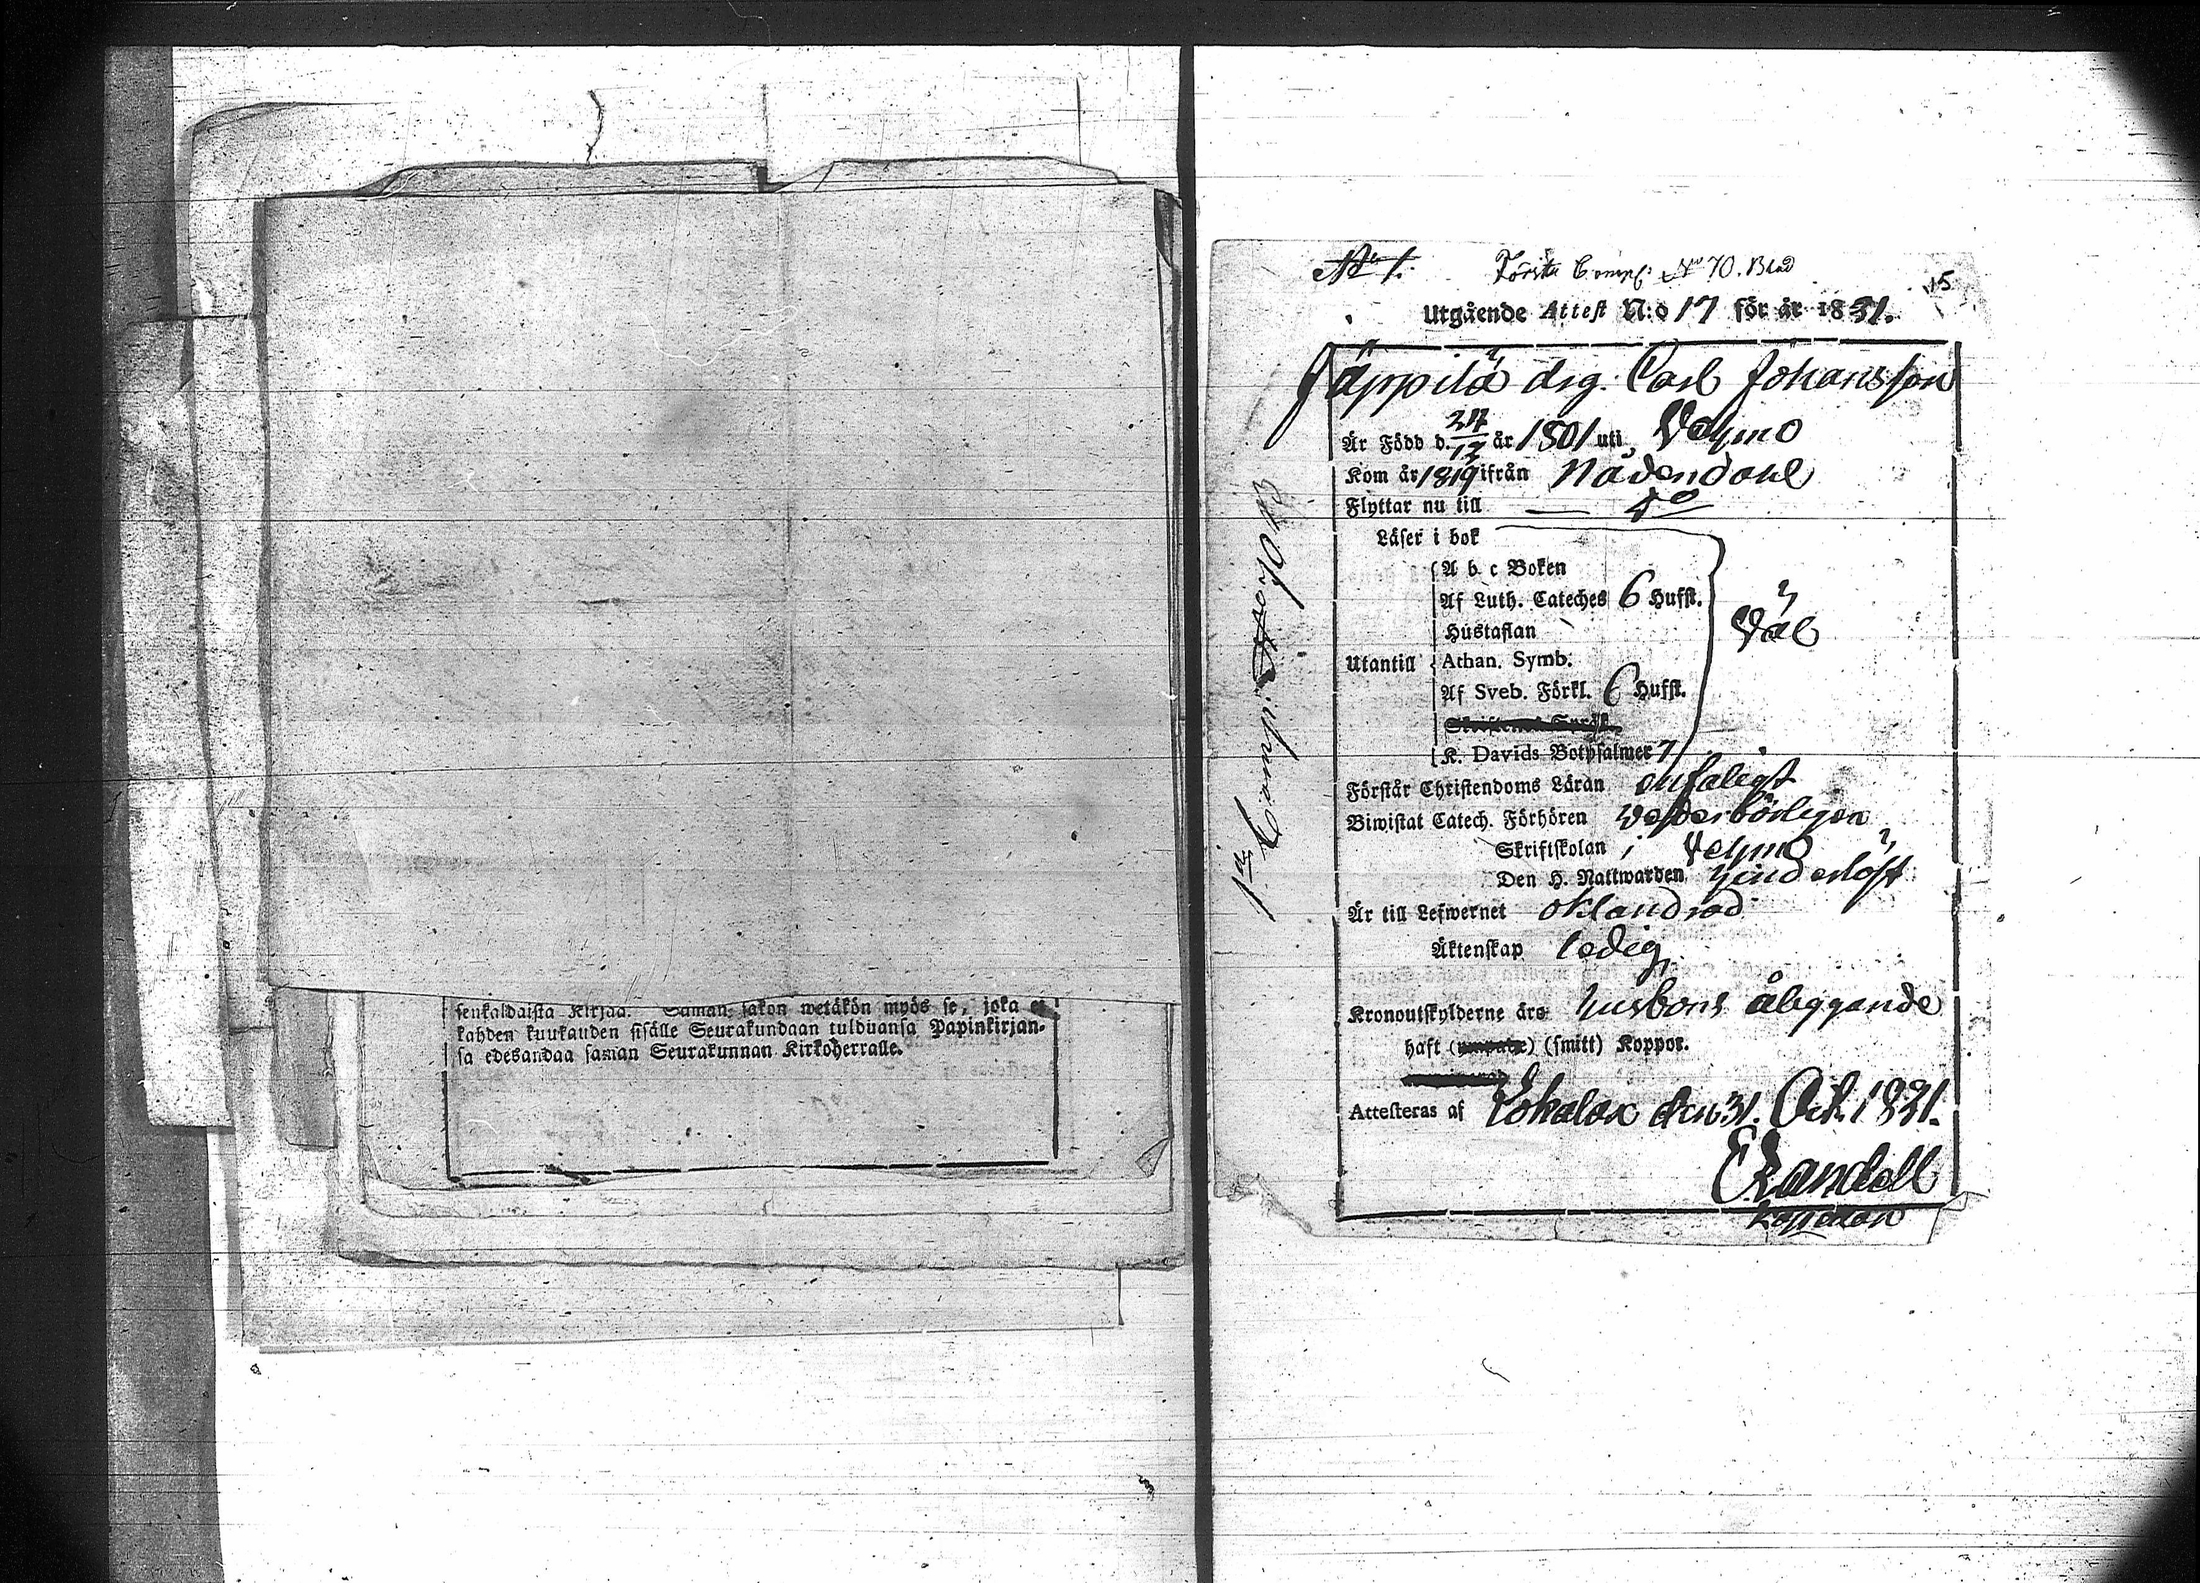 senkaldaista Kirjaa. Saman sakon wetäkön myös se, joka ei
kahden kuukauden sisälle Seurakundaan tulduansa Papinkirjan-
sa edesandaa saman Seurakunnan Kirkoherralle.
No 1.
Första Comp: No 70. Blad
15
Utgående Attest N:o 17 för år 1831.
Jäppilä drg. Carl Johansson
Är Född d. 24/12 år 1801 uti Vehmo
Kom år 1819 ifrån Nådendahl
Flyttar nu till — do
Läser i bok
A b c Boken
Af Luth. Cateches 6 Hufst.
Hustaflan
Väl
Utantill
Athan. Symb.
Af Sveb. Förkl. 6 Hufst.
K. Davids Botpsalmer 7
Förstår Christendoms Läran enfaligt
Biwistat Catech. Förhören vederbörligen
Skriftskolan i Vehmo
Den H. Nattwarden
Är till Lefwernet oklandrad
Äktenskap ledig
Kronoutskylderne äro husbons åliggande
haft (smitt) Koppor.
Attesteras af Lokalax den 31. Oct. 1831.
E Randell
Kapellan
1sta Comp. No 70 B